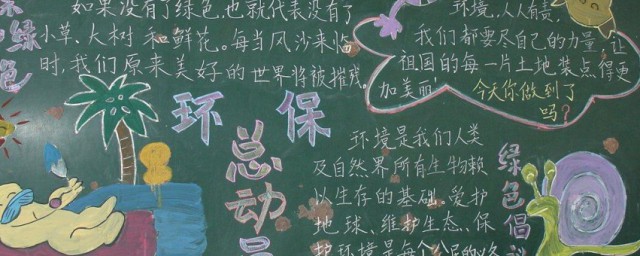 如果没有了绿色,也就代表没有了
小草、大树和鲜花。每当风沙来临
时,我们原来美好的世界将被摧残
绿
色
环境,人人有责,
我们都要尽自己的力量,让
祖国的每一片土地装点得更
加美丽!
今天你做到了
吗?
环保
总动员
环境是我们人类
及自然界所有生物赖
以生存的基础。爱护
地球、维护生态、保
护环境是每个公民的义务
绿色倡议